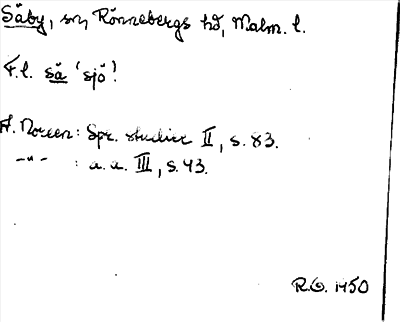 Säby, sn, Rönnebergs hd, Malm. l.
F.l. sä 'sjö'.
A. Noreen: Spr. studier II, s. 83.
-"- : a. a. III, s. 43.
R.O. 1950